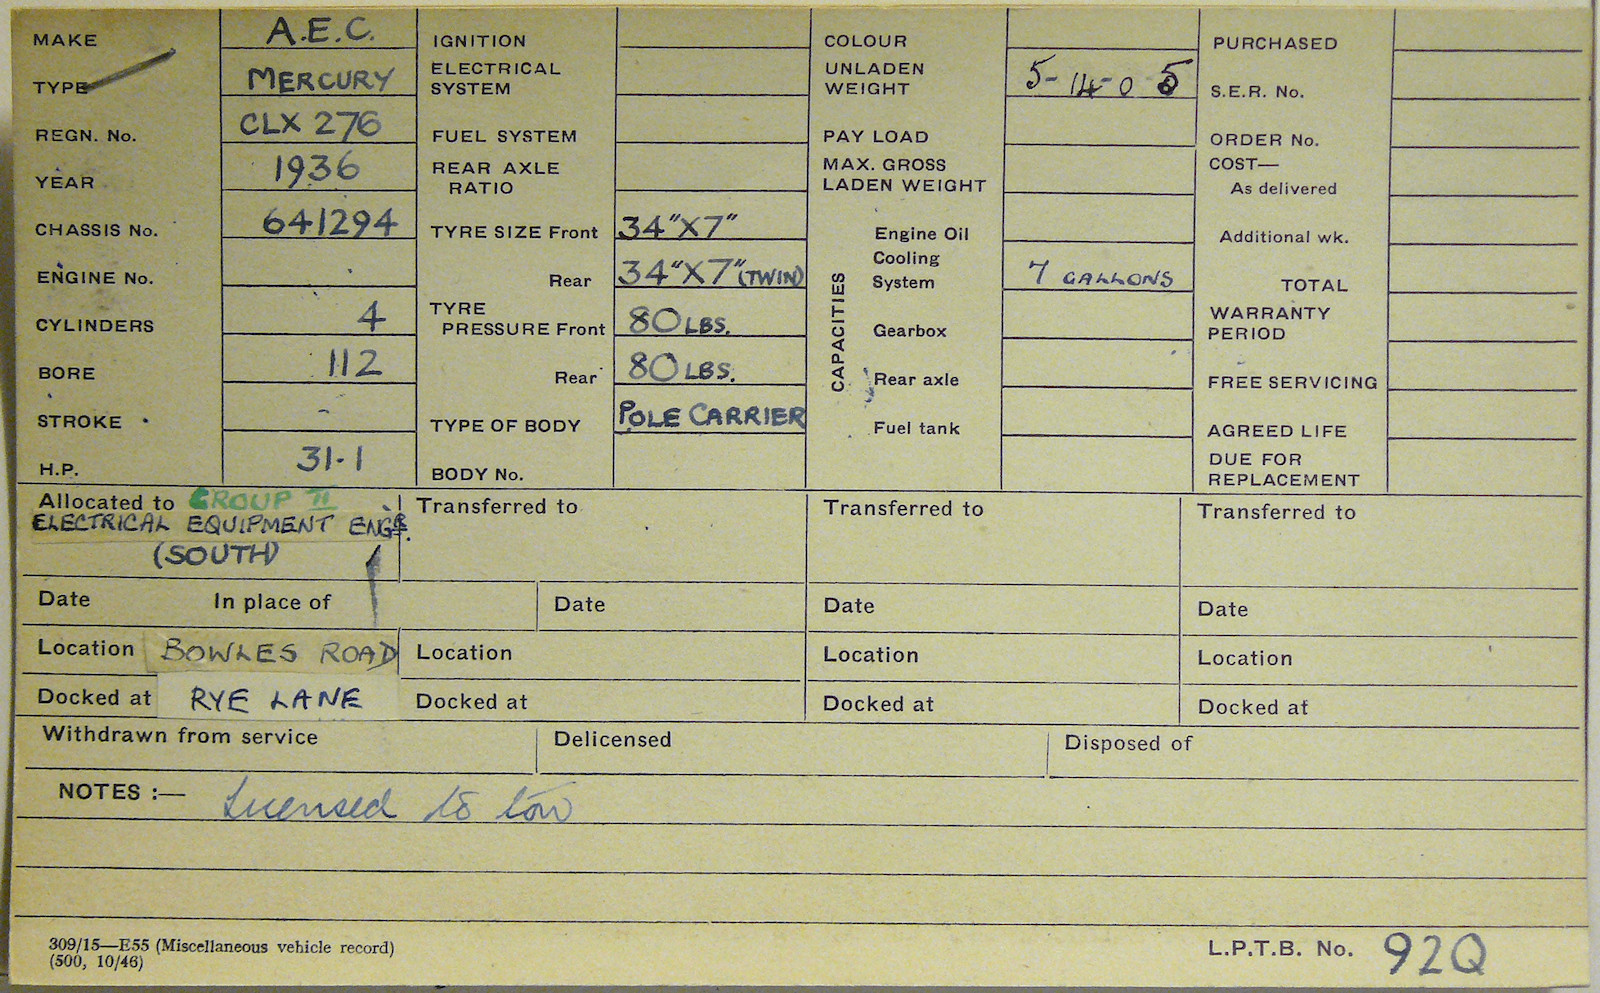 MAKE A.E.C.
TYPE MERCURY
REGN. No. CLX 276
YEAR 1936
CHASSIS No. 641294
ENGINE No.
CYLINDERS 4
BORE 112
STROKE -
H.P. 31·1
IGNITION
ELECTRICAL
SYSTEM
FUEL SYSTEM
REAR AXLE
RATIO
TYRE SIZE Front 34"X7"
Rear 34"X7"(TWIN)
TYRE
PRESSURE Front 80 LBS.
Rear 80 LBS.
TYPE OF BODY POLE CARRIER
BODY No.
COLOUR
UNLADEN
WEIGHT 5-14-0
PAY LOAD
MAX. GROSS
LADEN WEIGHT
CAPACITIES
Engine Oil
Cooling
System 7 GALLONS
Gearbox
Rear axle
Fuel tank
PURCHASED
S.E.R. No.
ORDER No.
COST—
As delivered
Additional wk.
TOTAL
WARRANTY
PERIOD
FREE SERVICING
AGREED LIFE
DUE FOR
REPLACEMENT
Allocated to GROUP II
ELECTRICAL EQUIPMENT ENGR.
(SOUTH)
Transferred to
Transferred to
Transferred to
Date In place of
Date
Date
Date
Location BOWLES ROAD
Location
Location
Location
Docked at RYE LANE
Docked at
Docked at
Docked at
Withdrawn from service
Delicensed
Disposed of
NOTES :— Licensed to tow
309/15—E55 (Miscellaneous vehicle record)
(500, 10/46)
L.P.T.B. No. 92Q